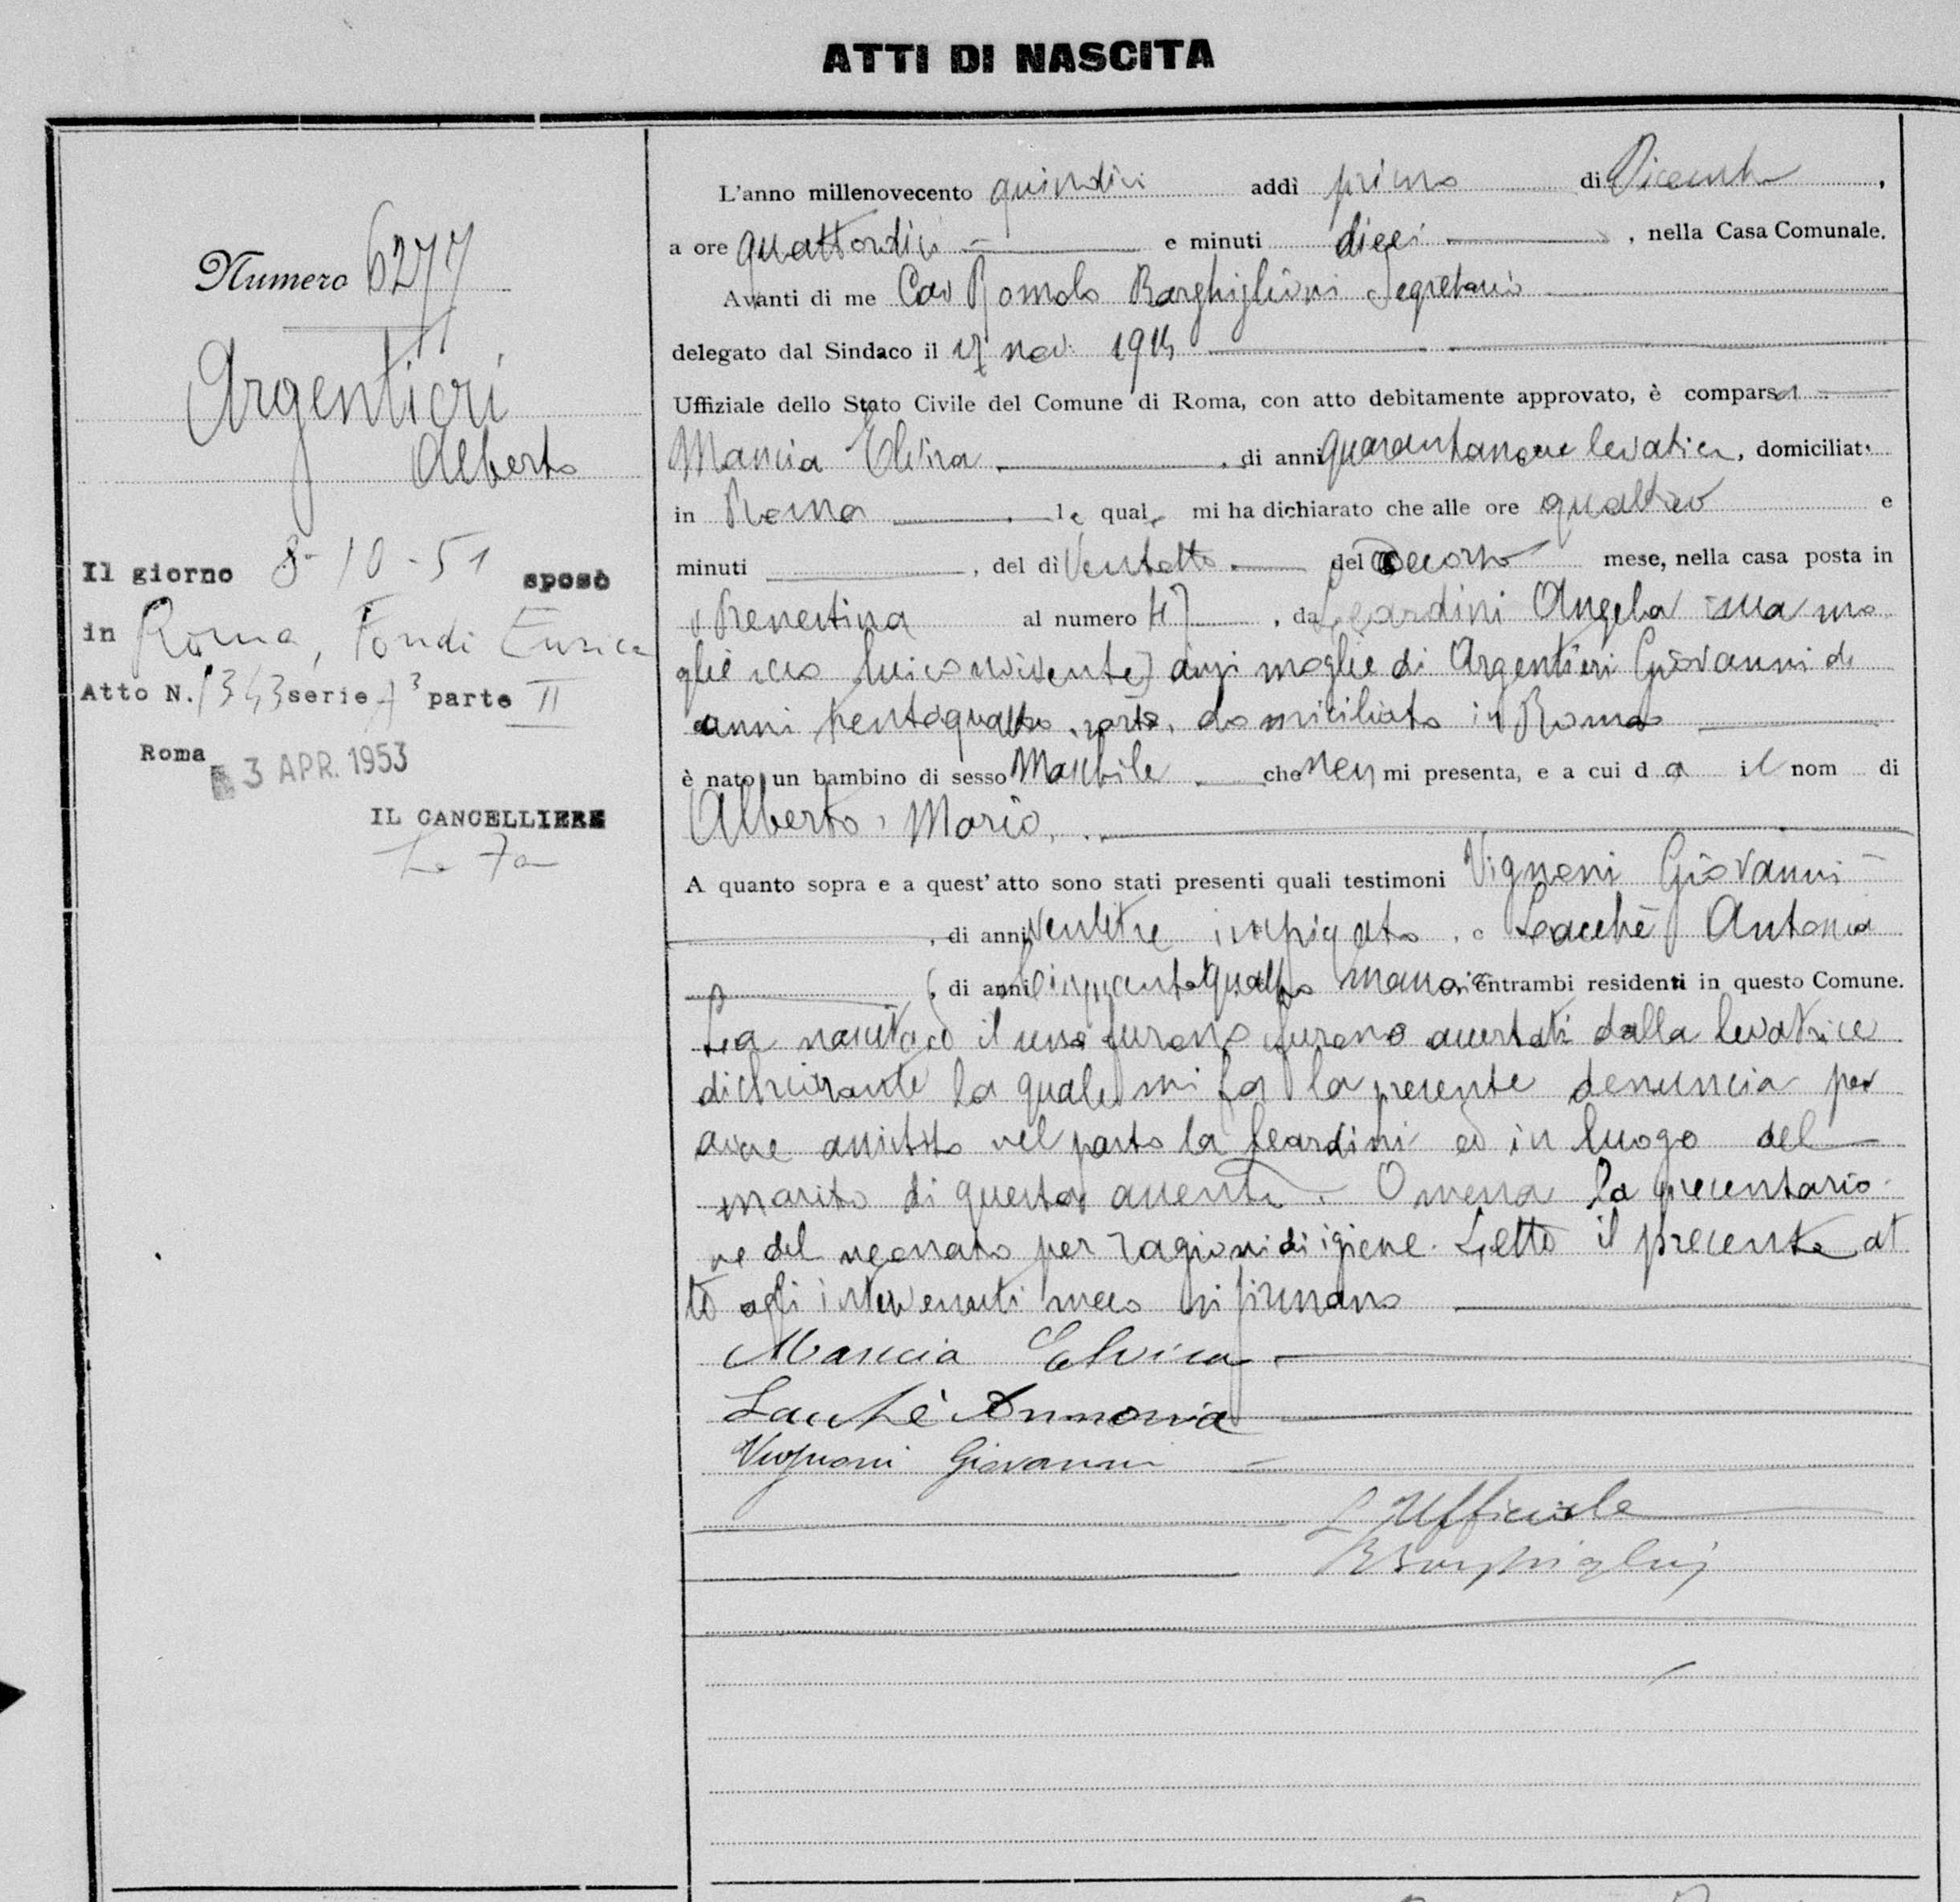 ATTI DI NASCITA
Numero 6277
Argentieri
Alberto
Il giorno 8-10-51 sposò
in Roma, Fondi Enrica
Atto N. 1343 serie A³ parte II
Roma 3 APR. 1953
IL CANCELLIERE
L'anno millenovecento quindici addì primo di Dicembre,
a ore quattordici e minuti dieci, nella Casa Comunale.
Avanti di me Cav Romolo Barghiglioni Segretario
delegato dal Sindaco il 17 nov. 1914
Uffiziale dello Stato Civile del Comune di Roma, con atto debitamente approvato, è comparsa
Mancia Elvira, di anni quarantanove levatrice, domiciliata
in Roma, la quale mi ha dichiarato che alle ore quattro e
minuti, del dì Ventotto del decorso mese, nella casa posta in
Prenestina al numero 47, da Leardini Angela sua mo
glie seco lui convivente) anzi moglie di Argentieri Giovanni di
anni trentaquattro, sarto, domiciliato in Roma
è nato un bambino di sesso Maschile che non mi presenta, e a cui dà il nome di
Alberto, Mario,
A quanto sopra e a quest'atto sono stati presenti quali testimoni Vignoni Giovanni
, di anni ventitre impiegato, e Lacchè Antonia
, di anni Cinquantaquattro entrambi residenti in questo Comune.
La nascita ed il sesso furono furono accertati dalla levatrice
dichiarante la quale mi fa la presente denuncia per
avere assistito nel parto la Leardini ed in luogo del
marito di questa assente. Omessa la presentazio
ne del neonato per ragioni di igiene. Letto il presente at
to agli intervenuti meco si firmano
Mancia Elvira
Lacchè Antonia
Vignoni Giovanni
L'Ufficiale
RBarghiglioni